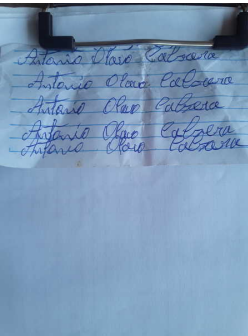 Antonio Olavo Calzera
Antonio Olavo Calzera
Antonio Olavo Calzera
Antonio Olavo Calzera
Antonio Olavo Calzera